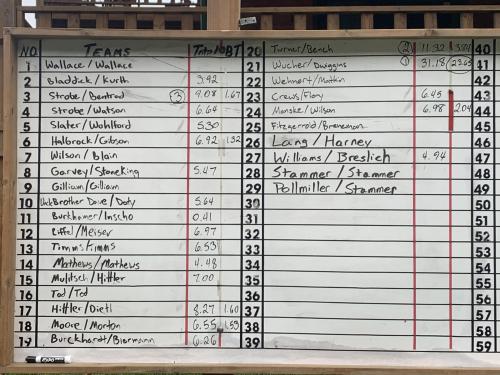 NO TEAMS Total BT
1 Wallace/Wallace
2 Bladdick/Kurth 3.92
3 Strobe/Bentrod ③ 9.08 1.67
4 Strobe/Watson 6.64
5 Slater/Wohlford 5.30
6 Halbrock/Gibson 6.92 1.32
7 Wilson/Blain
8 Garvey/Stoneking 5.47
9 Gilliam/Gilliam
10 Brother Dave/Doty 5.64
11 Burkhamer/Inscho 0.41
12 Eiffel/Meiser 6.97
13 Timms Timms 6.53
14 Mathews/Mathews 4.48
15 Mulitsch/Hittler 7.00
16 Tod/Tod
17 Hittler/Dietl 8.27 1.60
18 Moore/Morton 6.55 1.53
19 Burckhardt/Biermann 6.26
20 Turner/Bench ② 11.32 3.74
21 Wucher/Dwiggins ① 31.18 23.65
22 Wehmert/Matkin
23 Crews/Flory 6.45
24 Manske/Wilson 6.98 2.04
25 Fitzgerrold/Breneman
26 Lang/Harney
27 Williams/Breslich 4.94
28 Stammer/Stammer
29 Pollmiller/Stammer
30
31
32
33
34
35
36
37
38
39
40
41
42
43
44
45
46
47
48
49
50
51
52
53
54
55
56
57
58
59
EXPO